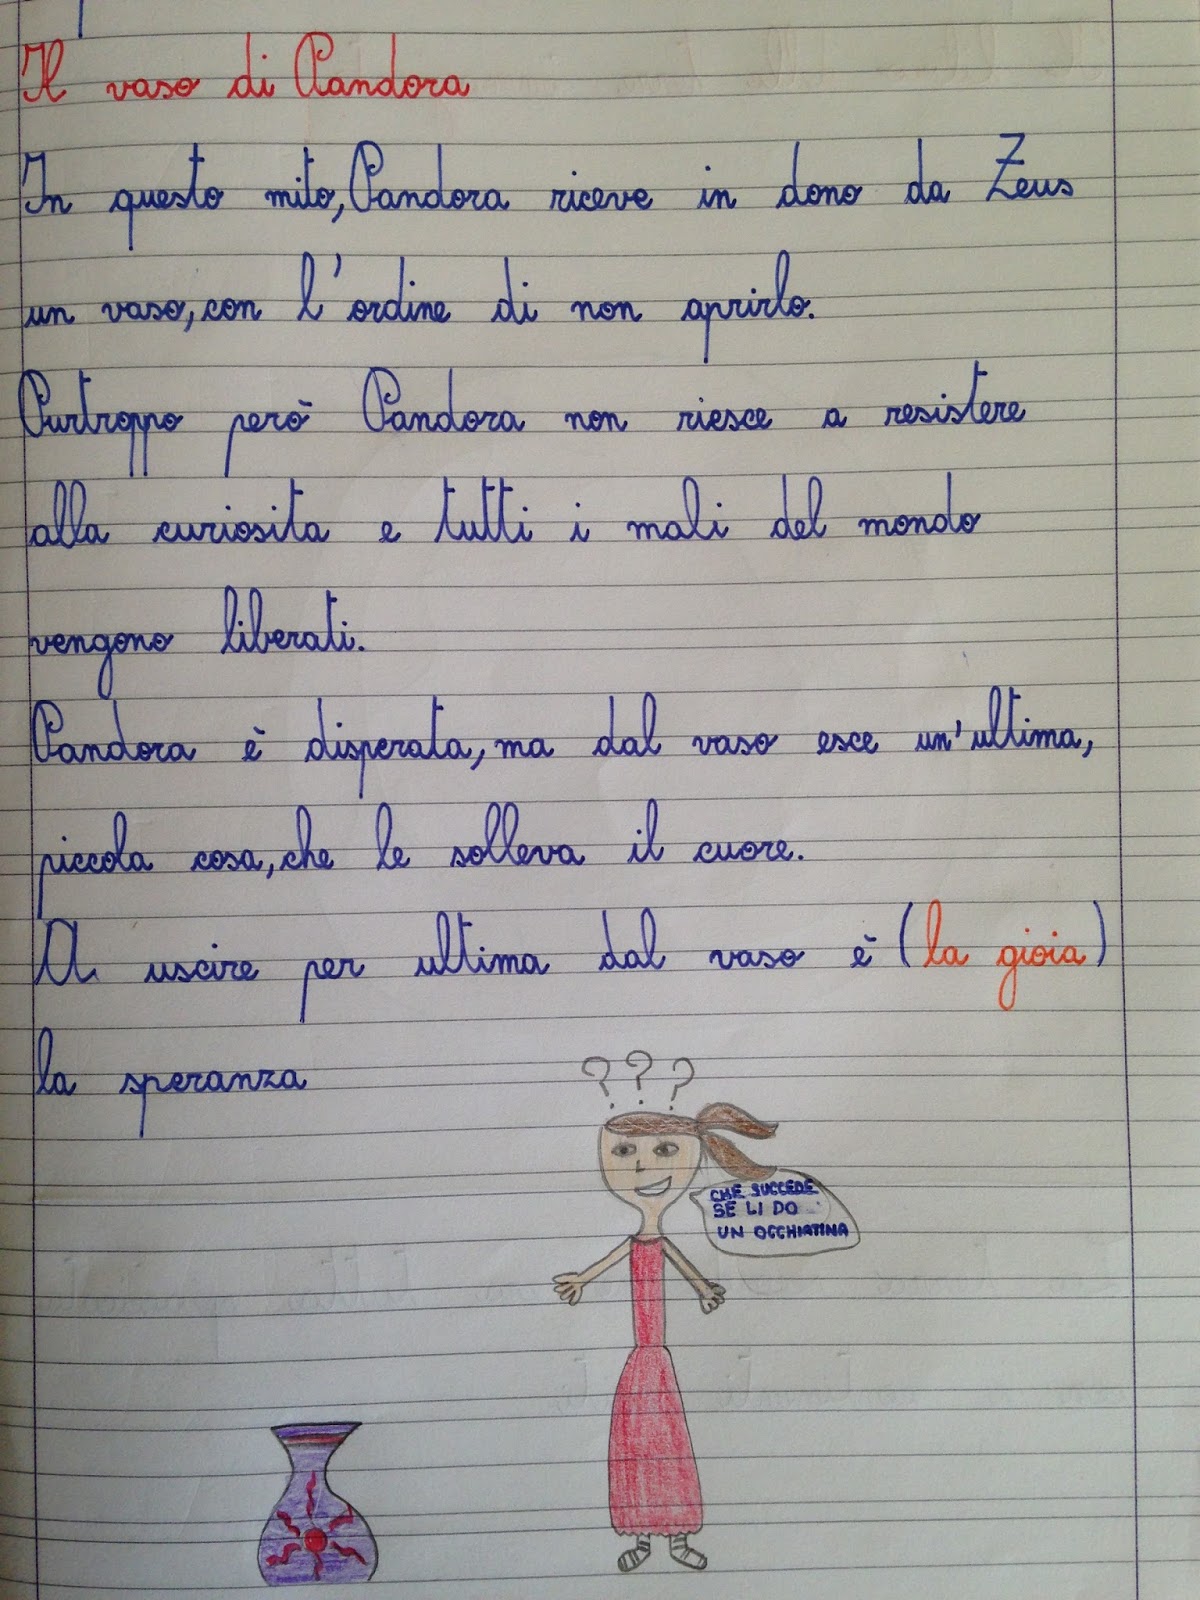 Il vaso di Pandora
In questo mito, Pandora riceve in dono da Zeus
un vaso, con l'ordine di non aprirlo.
Purtroppo però Pandora non riesce a resistere
alla curiosita e tutti i mali del mondo
vengono liberati.
Pandora è disperata, ma dal vaso esce un'ultima,
piccola cosa, che le solleva il cuore.
A uscire per ultima dal vaso è (la gioia)
la speranza
? ? ?
CHE SUCCEDE
SE LI DO
UN OCCHIATINA